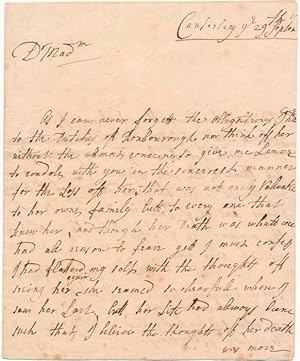 Canterbury ye 29th Septem
Dr Madm
As I can never forgett the obligations I have
to the Dutches of Roxborough nor think off her
without the utmost concern so give me Leave
to condole with you in the sincerest manner
for the Loss off her that was not only valluable
to her own family but to every one that
knew her, and though her Death was whatt wee
had all reason to fear yett I must confess
I had flatterd my self with the thoughts off
seing her again she seamed so chearfull when I
saw her Last, but her Life had always bene
such that I believe the thoughts of her death
was more